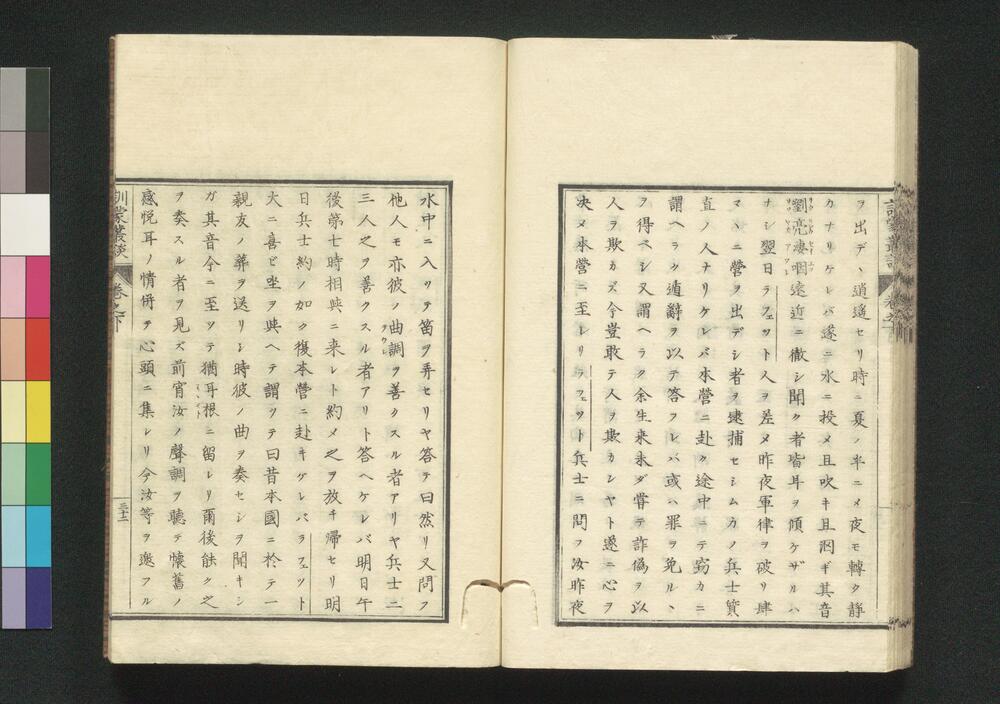 ヲ出デヽ逍遙セリ時ニ夏ノ半ニメ夜モ轉タ静
カナリケレバ遂ニ水ニ投メ且吹キ且泅ギ其音
劉亮凄咽遠近ニ徹シ聞ク者皆耳ヲ傾ケザルハ
ナシ翌日ラフェット人ヲ差メ昨夜軍律ヲ破リ肆
マヽニ營ヲ出デシ者ヲ逮捕セシムカノ兵士質
直ノ人ナリケレバ本營ニ赴ク途中ニテ窃カニ
謂ヘラク遁辭ヲ以テ答フレバ或ハ罪ヲ免ルヽ
ヲ得ベシ又謂ヘラク余生来未ダ嘗テ詐偽ヲ以
人ヲ欺カズ今豈敢テ人ヲ欺カンヤト遂ニ心ヲ
决メ本營ニ至レリラフェット兵士ニ問フ汝昨夜
訓蒙叢談 卷之下
水中ニ入ツテ笛ヲ弄セリヤ答テ曰然リ又問フ
他人モ亦彼ノ曲調ヲ善クスル者アリヤ兵士二
三人之ヲ善クスル者アリト答ヘケレバ明日午
後第七時相與ニ来レト約メ之ヲ放チ歸セリ明
日兵士約ノ如ク復本營ニ赴キケレバラフェット
大ニ喜ビ坐ヲ與ヘテ謂ツテ曰昔本國ニ於テ一
親友ノ葬ヲ送リシ時彼ノ曲ヲ奏セシヲ聞キシ
ガ其音今ニ至ツテ猶耳根ニ留レリ爾後能ク之
ヲ奏スル者ヲ見ズ前宵汝ノ聲調ヲ聽テ懐舊ノ
感悦耳ノ情併テ心頭ニ集レリ今汝等ヲ邀フル
訓蒙叢談 卷之下 三十二